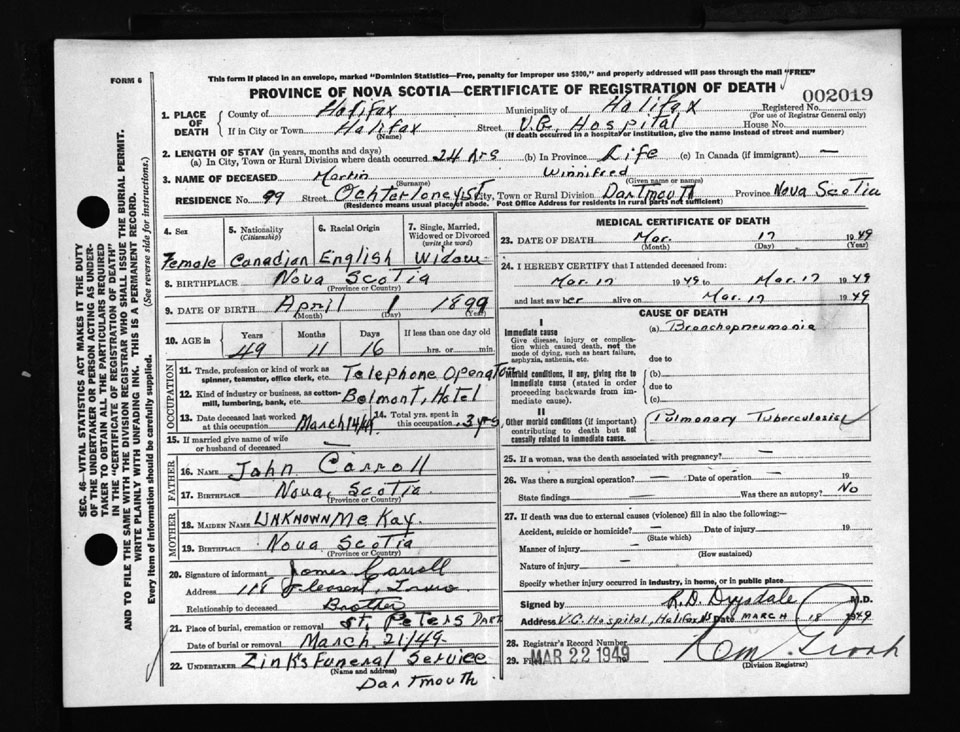 FORM 6
This form if placed in an envelope, marked "Dominion Statistics—Free, penalty for improper use $300," and properly addressed will pass through the mail "FREE"
PROVINCE OF NOVA SCOTIA—CERTIFICATE OF REGISTRATION OF DEATH
002019
1. PLACE OF DEATH
County of Halifax Municipality of Halifax Registered No.
(For use of Registrar General only)
If in City or Town Halifax Street V.G. Hospital House No.
(Name) (If death occurred in a hospital or institution, give the name instead of street and number)
2. LENGTH OF STAY (in years, months and days)
(a) In City, Town or Rural Division where death occurred 24 hrs (b) In Province Life (c) In Canada (if immigrant) —
3. NAME OF DECEASED Martin Winnifred
(Surname) (Given name or names)
RESIDENCE No. 99 Street Ochterloney St City, Town or Rural Division Dartmouth Province Nova Scotia
(Residence means usual place of abode. Post Office Address for residents in rural parts not sufficient)
4. Sex 5. Nationality (Citizenship) 6. Racial Origin 7. Single, Married, Widowed or Divorced (write the word)
Female Canadian English Widow
8. BIRTHPLACE Nova Scotia
(Province or Country)
9. DATE OF BIRTH April 1 1899
(Month) (Day) (Year)
10. AGE in Years Months Days If less than one day old
49 11 16 hrs. or min.
OCCUPATION
11. Trade, profession or kind of work as spinner, teamster, office clerk, etc. Telephone Operator
12. Kind of industry or business, as cotton-mill, lumbering, bank, etc. Belmont, Hotel
13. Date deceased last worked at this occupation March 14/49 14. Total yrs. spent in this occupation 3 yrs
15. If married give name of wife or husband of deceased —
FATHER
16. NAME John Carroll
17. BIRTHPLACE Nova Scotia
(Province or Country)
MOTHER
18. MAIDEN NAME UNKNOWN McKay.
19. BIRTHPLACE Nova Scotia
(Province or Country)
20. Signature of informant James Carroll
Address 118 Pleasant, Truro
Relationship to deceased Brother
21. Place of burial, cremation or removal St. Peters Dart
Date of burial or removal March 21/49
22. UNDERTAKER Zink's Funeral Service
(Name and address)
Dartmouth
MEDICAL CERTIFICATE OF DEATH
23. DATE OF DEATH Mar. 17 1949
(Month) (Day) (Year)
24. I HEREBY CERTIFY that I attended deceased from:
Mar. 17 1949 to Mar. 17 1949
and last saw her alive on Mar. 17 1949
CAUSE OF DEATH
I
Immediate cause
Give disease, injury or complication which caused death, not the mode of dying, such as heart failure, asphyxia, asthenia, etc.
(a) Bronchopneumonia
due to
Morbid conditions, if any, giving rise to immediate cause (stated in order proceeding backwards from immediate cause).
(b)
due to
(c)
II
Other morbid conditions (if important) contributing to death but not causally related to immediate cause.
Pulmonary Tuberculosis
25. If a woman, was the death associated with pregnancy? —
26. Was there a surgical operation? — Date of operation — 19
State findings — Was there an autopsy? No
27. If death was due to external causes (violence) fill in also the following:—
Accident, suicide or homicide? — Date of injury — 19
(State which)
Manner of injury —
(How sustained)
Nature of injury —
Specify whether injury occurred in industry, in home, or in public place
Signed by R.D. Drysdale M.D.
Address V.G. Hospital, Halifax NS Date MARCH 18 1949
28. Registrar's Record Number
29. Filed MAR 22 1949
(Division Registrar)
SEC. 46—VITAL STATISTICS ACT MAKES IT THE DUTY
OF THE UNDERTAKER OR PERSON ACTING AS UNDER-
TAKER TO OBTAIN ALL THE PARTICULARS REQUIRED
IN THE "CERTIFICATE OF REGISTRATION OF DEATH"
AND TO FILE THE SAME WITH THE DIVISION REGISTRAR WHO SHALL ISSUE THE BURIAL PERMIT.
WRITE PLAINLY WITH UNFADING INK. THIS IS A PERMANENT RECORD.
Every item of information should be carefully supplied. (See reverse side for instructions.)